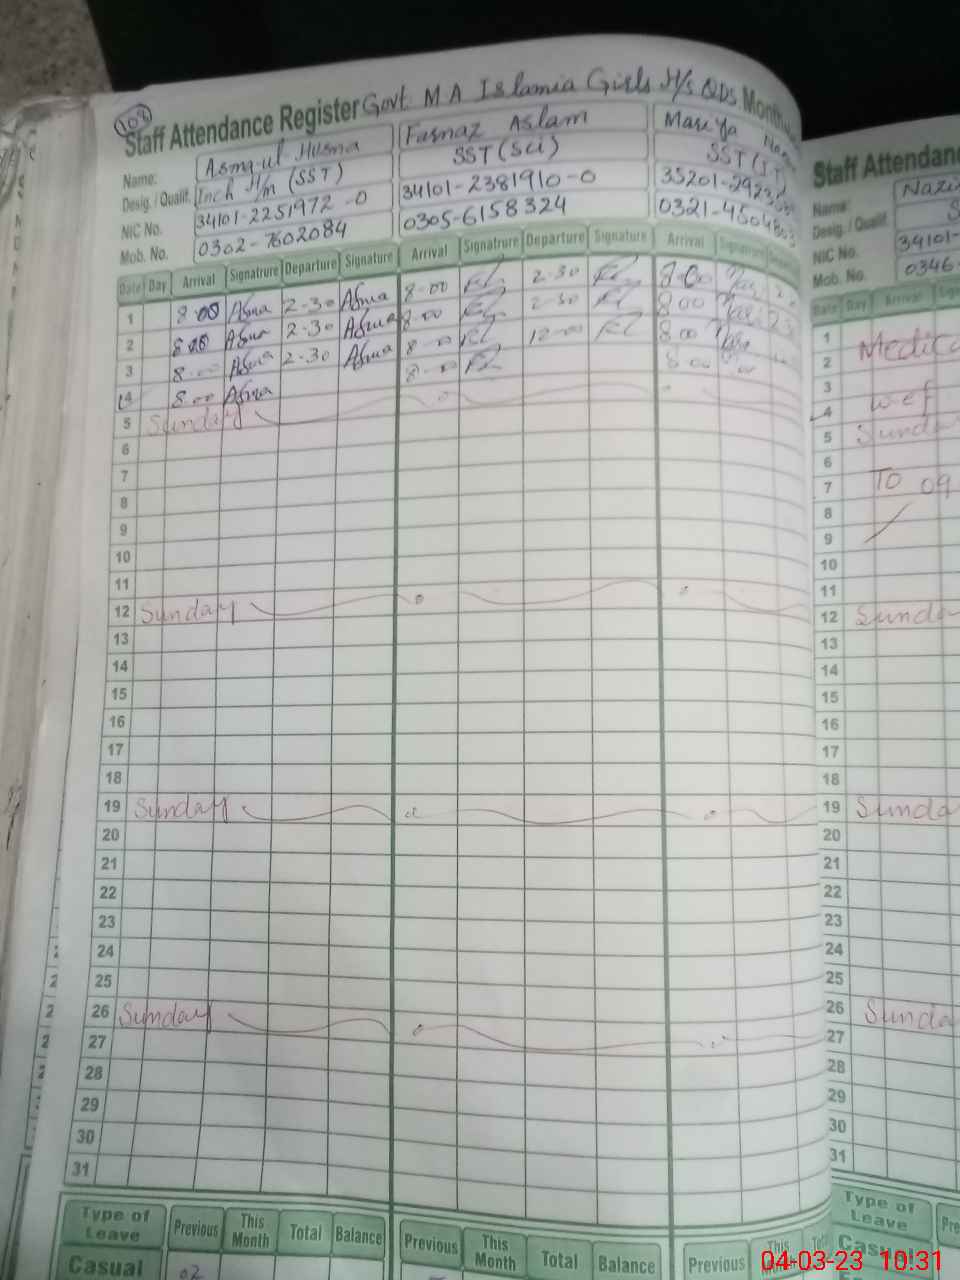 108
Staff Attendance Register Govt M A Islamia Girls H/s QDS Month
Name: Asma-ul-Husna Farnaz Aslam Mariya
Desig. / Qualif. Inch H/m (SST) SST (Sci) SST (IT)
NIC No. 34101-2251972-0 34101-2381910-0 35201-2923
Mob. No. 0302-7602084 0305-6158324 0321-4504803
Date Day Arrival Signatrure Departure Signature Arrival Signatrure Departure Signature Arrival Signatrure
1 8-00 Asma 2-30 Asma 8-00 2-30 8-00
2 8 00 Asma 2-30 Asma 8-00 2-30 8 00
3 8-00 Asma 2-30 Asma 8-00 12-00 8 00
4 8.00 Asma 8-00 8 00
5 Sunday
6
7
8
9
10
11
12 Sunday
13
14
15
16
17
18
19 Sunday
20
21
22
23
24
25
26 Sunday
27
28
29
30
31
Type of Leave Previous This Month Total Balance Previous This Month Total Balance Previous This Month
Casual 02
Staff Attendan
Name: Nazi
Desig. / Qualif. S
NIC No. 34101-
Mob. No. 0346-
Date Day Arrival
1 Medica
2
3 wef
4
5 Sunda
6
7 To 09
8
9
10
11
12 Sunda
13
14
15
16
17
18
19 Sunda
20
21
22
23
24
25
26 Sunda
27
28
29
30
31
Type of Leave Pre
Casual
04-03-23 10:31